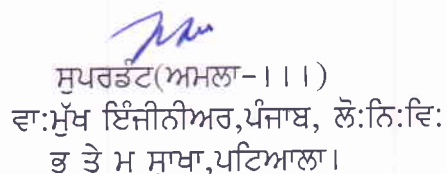 ਸੁਪਰਡੰਟ(ਅਮਲਾ-।।।)
ਵਾ:ਮੁੱਖ ਇੰਜੀਨੀਅਰ,ਪੰਜਾਬ, ਲੋ:ਨਿ:ਵਿ:
ਭ ਤੇ ਮ ਸਾਖਾ,ਪਟਿਆਲਾ।